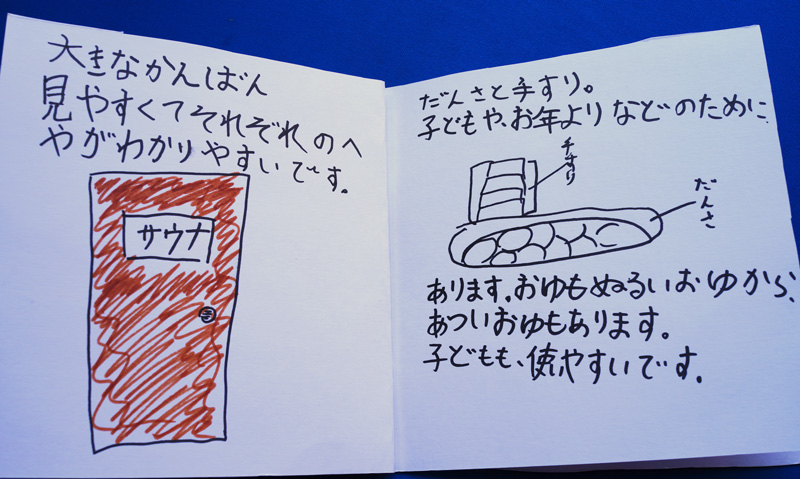 大きなかんばん
見やすくてそれぞれのへ
やがわかりやすいです。
サウナ
だんさと手すり。
子どもや、お年よりなどのために
手すり
だんさ
あります。おゆもぬるいおゆから、
あついおゆもあります。
子どもも、使いやすいです。